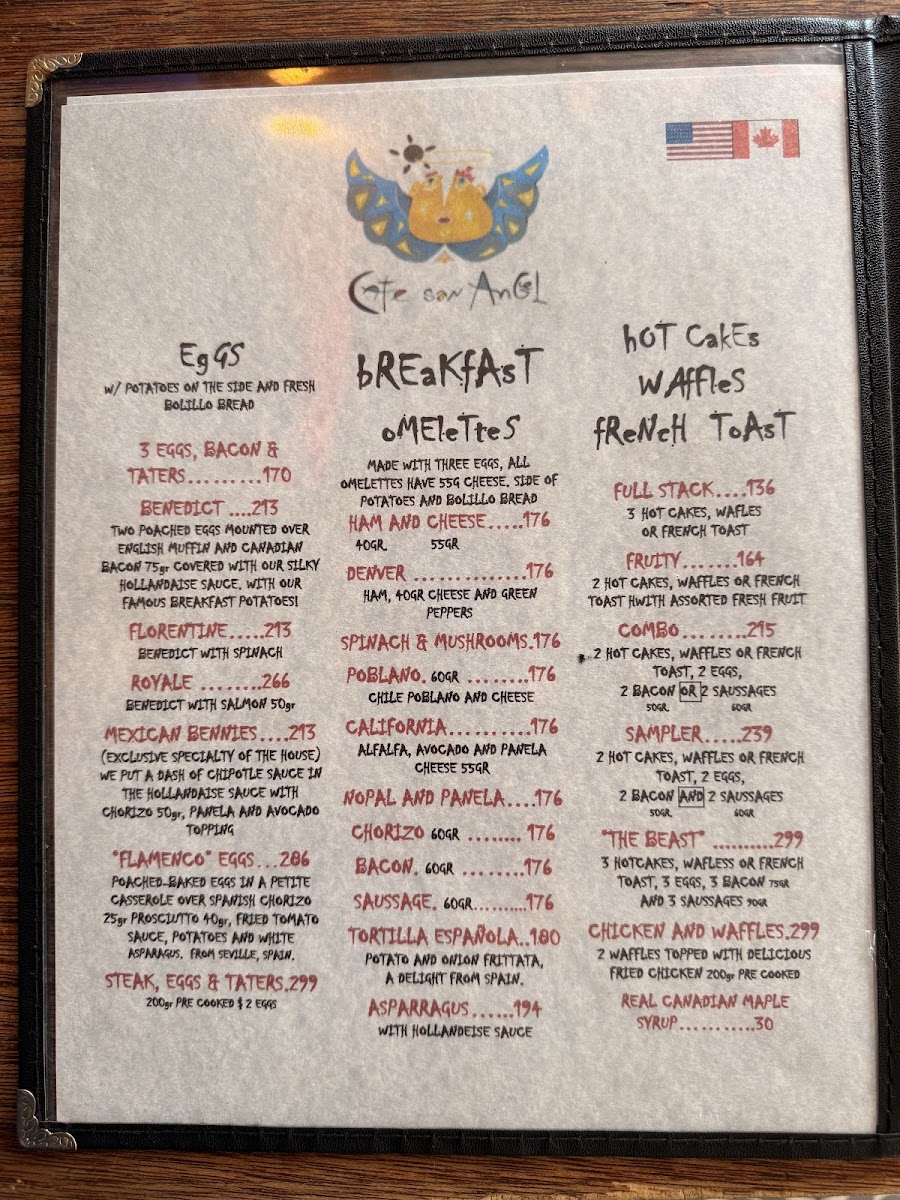 Cafe san AnGEL
EgGS
W/ POTATOES ON THE SIDE AND FRESH
BOLILLO BREAD
3 EGGS, BACON &
TATERS.........170
BENEDICT ....213
TWO POACHED EGGS MOUNTED OVER
ENGLISH MUFFIN AND CANADIAN
BACON 75gr COVERED WITH OUR SILKY
HOLLANDAISE SAUCE. WITH OUR
FAMOUS BREAKFAST POTATOES!
FLORENTINE.....213
BENEDICT WITH SPINACH
ROYALE ........266
BENEDICT WITH SALMON 50gr
MEXICAN BENNIES....213
(EXCLUSIVE SPECIALTY OF THE HOUSE)
WE PUT A DASH OF CHIPOTLE SAUCE IN
THE HOLLANDAISE SAUCE WITH
CHORIZO 50gr, PANELA AND AVOCADO
TOPPING
"FLAMENCO" EGGS...286
POACHED-BAKED EGGS IN A PETITE
CASSEROLE OVER SPANISH CHORIZO
25gr PROSCIUTTO 40gr, FRIED TOMATO
SAUCE, POTATOES AND WHITE
ASPARAGUS. FROM SEVILLE, SPAIN.
STEAK, EGGS & TATERS.299
200gr PRE COOKED $ 2 EGGS
bREaKfAsT
oMEleTteS
MADE WITH THREE EGGS, ALL
OMELETTES HAVE 55G CHEESE. SIDE OF
POTATOES AND BOLILLO BREAD
HAM AND CHEESE.....176
40GR. 55GR
DENVER ..............176
HAM, 40GR CHEESE AND GREEN
PEPPERS
SPINACH & MUSHROOMS.176
POBLANO. 60GR ........176
CHILE POBLANO AND CHEESE
CALIFORNIA..........176
ALFALFA, AVOCADO AND PANELA
CHEESE 55GR
NOPAL AND PANELA....176
CHORIZO 60GR ........ 176
BACON. 60GR .........176
SAUSSAGE. 60GR.........176
TORTILLA ESPAÑOLA..180
POTATO AND ONION FRITTATA,
A DELIGHT FROM SPAIN.
ASPARRAGUS......194
WITH HOLLANDEISE SAUCE
hOT CakEs
WAffleS
fReNcH ToAsT
FULL STACK....136
3 HOT CAKES, WAFLES
OR FRENCH TOAST
FRUITY.......164
2 HOT CAKES, WAFFLES OR FRENCH
TOAST HWITH ASSORTED FRESH FRUIT
COMBO.........215
2 HOT CAKES, WAFFLES OR FRENCH
TOAST, 2 EGGS,
2 BACON OR 2 SAUSSAGES
50GR. 60GR
SAMPLER.....239
2 HOT CAKES, WAFFLES OR FRENCH
TOAST, 2 EGGS,
2 BACON AND 2 SAUSSAGES
50GR. 60GR
"THE BEAST" ..........299
3 HOTCAKES, WAFLESS OR FRENCH
TOAST, 3 EGGS, 3 BACON 75GR
AND 3 SAUSSAGES 90GR
CHICKEN AND WAFFLES.299
2 WAFFLES TOPPED WITH DELICIOUS
FRIED CHICKEN 200gr PRE COOKED
REAL CANADIAN MAPLE
SYRUP...........30